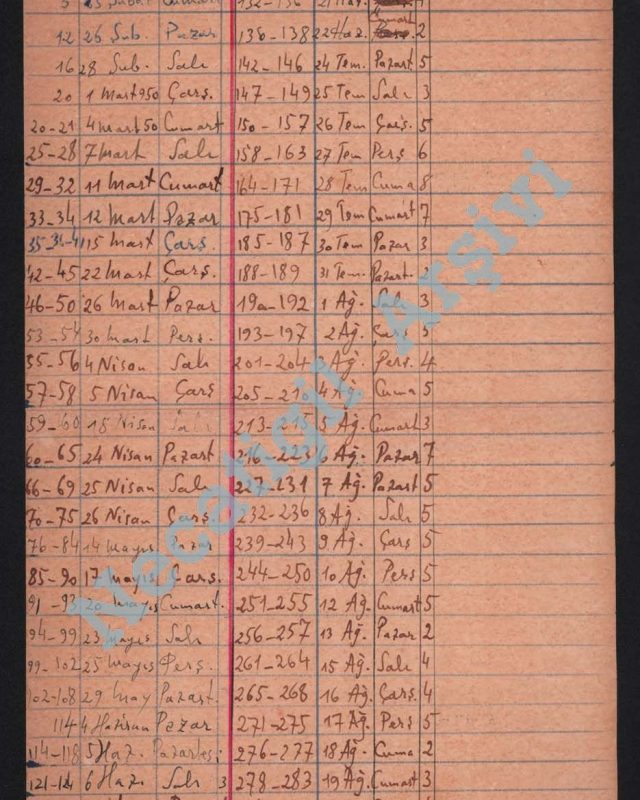 12 26 Şub. Pazar 136-138 22 Haz. 2
16 28 Şub. Salı 142-146 24 Tem. Pazart 5
20 1 Mart 950 Çarş. 147-149 25 Tem Salı 3
20-21 4 Mart 50 Cumart 150-157 26 Tem Çarş. 5
25-28 7 Mart Salı 158-163 27 Tem Perş 6
29-32 11 Mart Cumart 164-171 28 Tem Cuma 8
33-34 12 Mart Pazar 175-181 29 Tem Cumart 7
15 Mart Çarş. 185-187 30 Tem Pazar 3
42-45 22 Mart Çarş. 188-189 31 Tem. Pazart. 2
46-50 26 Mart Pazar 190-192 1 Ağ. Salı 3
53-54 30 Mart Pers. 193-197 2 Ağ. Çarş 5
55-56 4 Nisan Salı 201-204 3 Ağ. Perş. 4
57-58 5 Nisan Çarş 205-210 4 Ağ. Cuma 5
59-60 18 Nisan Salı 213-215 5 Ağ. Cumart 3
60-65 24 Nisan Pazart 216-223 6 Ağ. Pazar 7
66-69 25 Nisan Salı 227-231 7 Ağ. Pazart 5
70-75 26 Nisan Çarş 232-236 8 Ağ. Salı 5
76-84 14 Mayıs Pazar 239-243 9 Ağ. Çarş 5
85-90 17 Mayıs Çarş. 244-250 10 Ağ. Perş 5
91-93 20 Mayıs Cumart. 251-255 12 Ağ. Cumart 5
94-99 23 Mayıs Salı 256-257 13 Ağ. Pazar 2
99-102 25 Mayıs Perş. 261-264 15 Ağ. Salı 4
102-108 29 May Pazart. 265-268 16 Ağ. Çarş. 4
114 4 Haziran Pazar 271-275 17 Ağ. Perş 5
114-118 5 Haz. Pazartesi 276-277 18 Ağ. Cuma 2
121-124 6 Haz Salı 3 278-283 19 Ağ. Cumart 3
Necatigil Arşivi